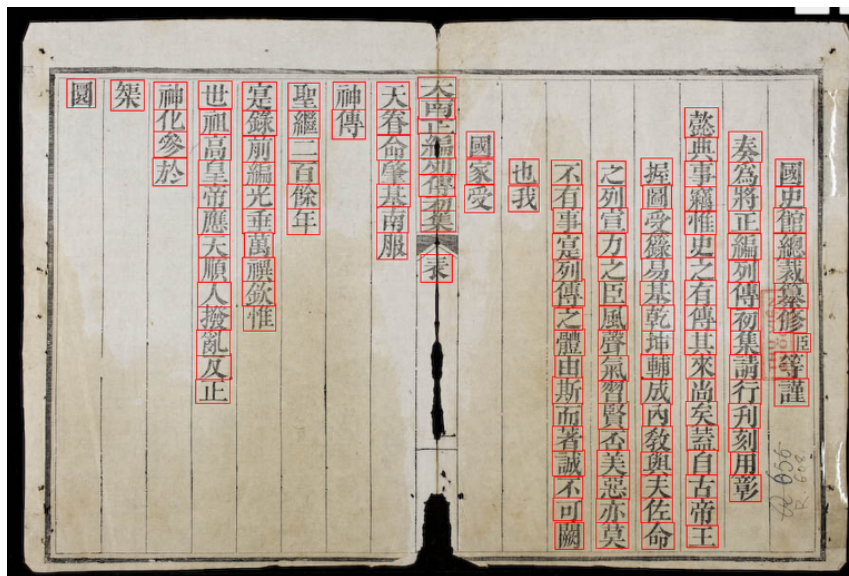 國史館總裁纂修臣等謹
奏爲將正編列傳初集請行刋刻用彰
懿典事竊惟史之有傳其來尚矣蓋自古帝王
握圖受籙易基乾坤輔成內敎與天佐命
之列宣力之臣風聲氣習賢否美惡亦莫
不有事寔列傳之體由斯而著誠不可闕
也我
國家受
大南正編列傳初集 表
天眷命肇基南服
神傳
聖繼二百餘年
寔錄前編光垂萬禩欽惟
世祖高皇帝應天順人撥亂反正
神化參於
榘
圜
R. 608